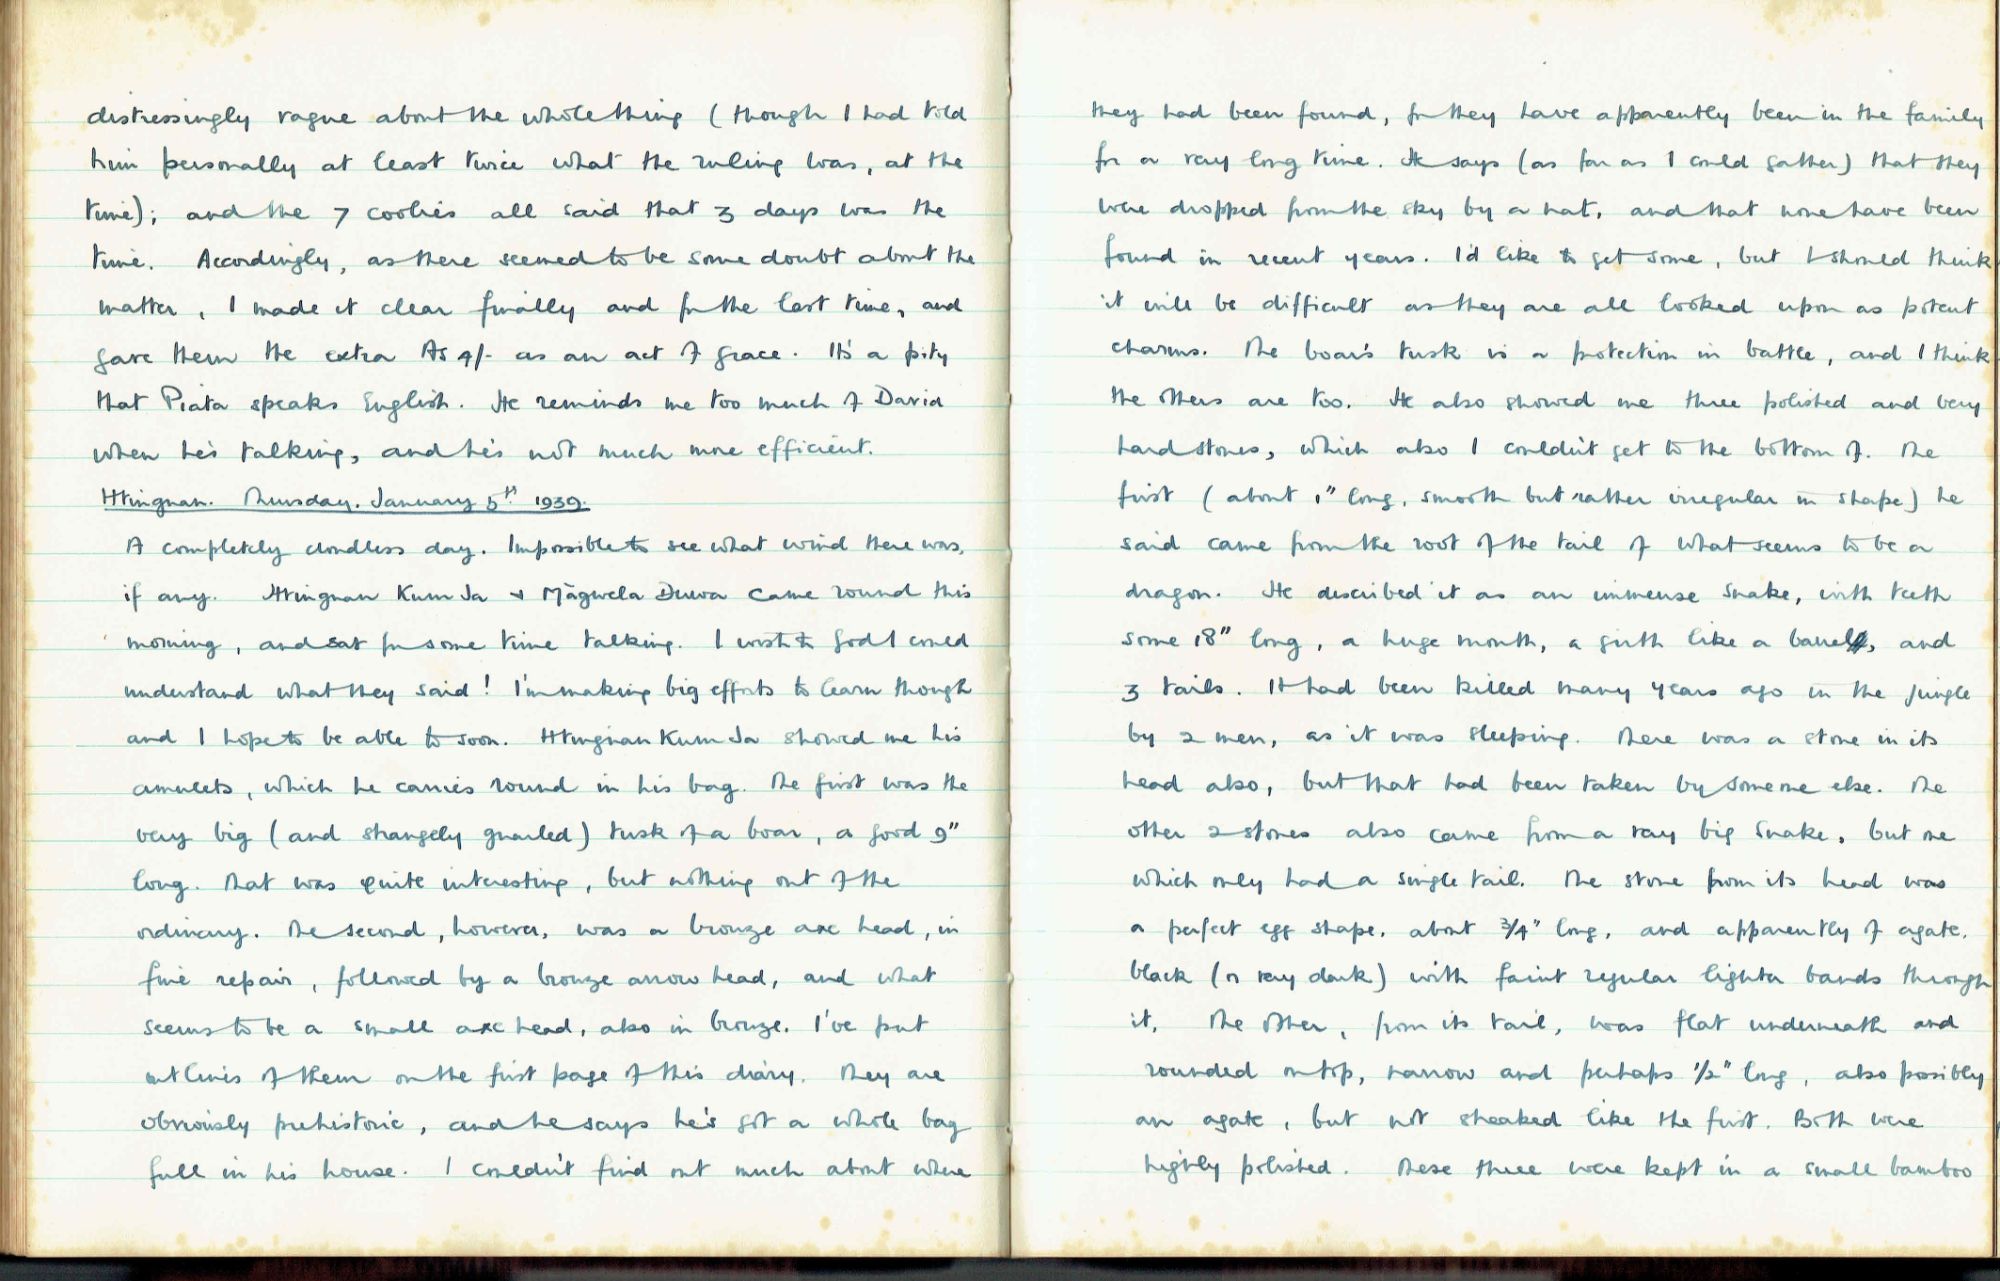 distressingly vague about the whole thing (though I had told
him personally at least twice what the ruling was, at the
time); and the 7 coolies all said that 3 days was the
time. Accordingly, as there seemed to be some doubt about the
matter, I made it clear finally and for the last time, and
gave them the extra As 4/- as an act of grace. It's a pity
that Piata speaks English. He reminds me too much of David
when he's talking, and he's not much more efficient.
Htingnan. Thursday. January 5th. 1939.
A completely cloudless day. Impossible to see what wind there was,
if any. Htingnan Kum Ja + Māgwela Duwa came round this
morning, and sat for some time talking. I wish to God I could
understand what they said! I'm making big efforts to learn though
and I hope to be able to soon. Htingnan Kum Ja showed me his
amulets, which he carries round in his bag. The first was the
very big (and strangely gnarled) tusk of a boar, a good 9"
long. That was quite interesting, but nothing out of the
ordinary. The second, however, was a bronze axe head, in
fine repair, followed by a bronze arrow head, and what
seems to be a small axe head, also in bronze. I've put
outlines of them on the first page of this diary. They are
obviously prehistoric, and he says he's got a whole bag
full in his house. I couldn't find out much about where
they had been found, for they have apparently been in the family
for a very long time. He says (as far as I could gather) that they
were dropped from the sky by a nat, and that none have been
found in recent years. I'd like to get some, but I should think
it will be difficult as they are all looked upon as potent
charms. The boar's tusk is a protection in battle, and I think
the others are too. He also showed me three polished and very
hard stones, which also I couldn't get to the bottom of. The
first (about 1" long, smooth but rather irregular in shape) he
said came from the root of the tail of what seems to be a
dragon. He described it as an immense snake, with teeth
some 18" long, a huge mouth, a girth like a barrel, and
3 tails. It had been killed many years ago in the jungle
by 2 men, as it was sleeping. There was a stone in its
head also, but that had been taken by someone else. The
other 2 stones also came from a very big snake, but one
which only had a single tail. The stone from its head was
a perfect egg shape, about 3/4" long, and apparently of agate,
black (or very dark) with faint regular lighter bands through
it. The other, from its tail, was flat underneath and
rounded on top, narrow and perhaps 1/2" long, also possibly
an agate, but not streaked like the first. Both were
highly polished. These three were kept in a small bamboo